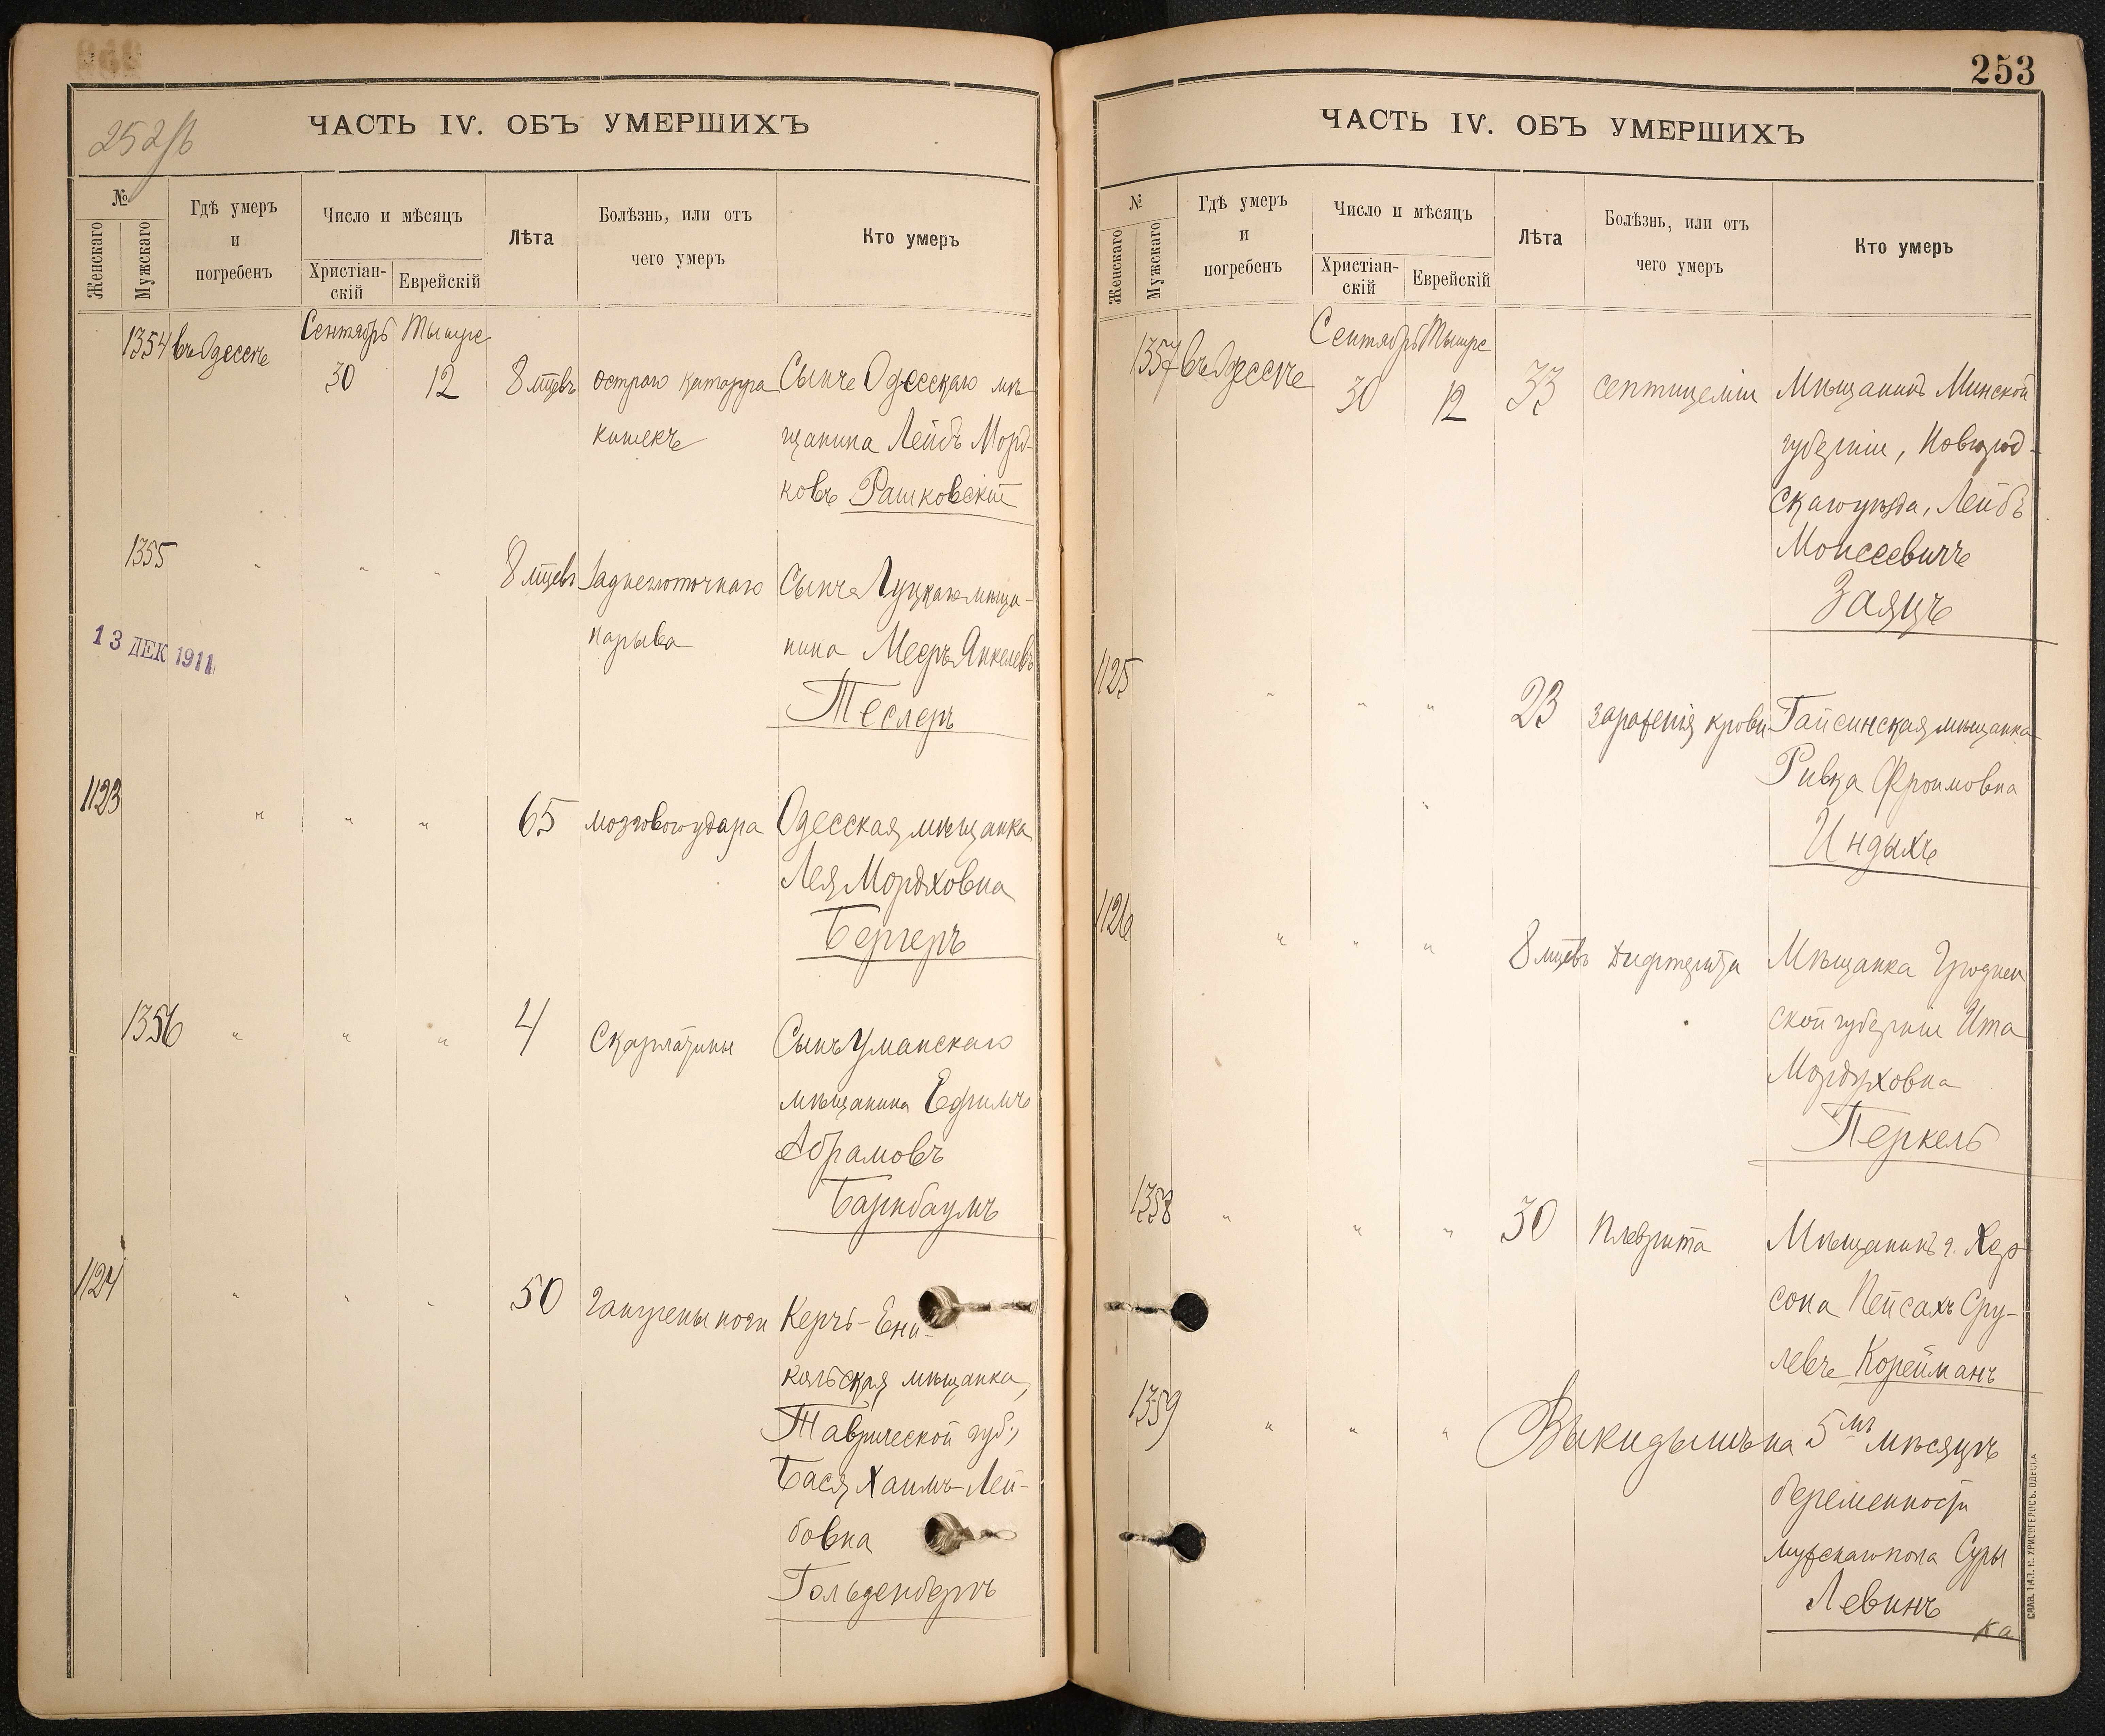 252/б
ЧАСТЬ IV. ОБЪ УМЕРШИХЪ
№
Женскаго
Мужскаго
Гдѣ умеръ
и
погребенъ
Число и мѣсяцъ
Христіан-
скій
Еврейскій
Лѣта
Болѣзнь, или отъ
чего умеръ
Кто умеръ
Сентябрь Тишре
1354 въ Одессѣ 30 12 8 мцевъ острого катарра Сынъ Одесскаго мѣ-
кишекъ щанина Лейбъ Морд-
ковъ Рашковскій
1355 " " " 8 мцевъ Заднеглоточнаго Сынъ Луцкаго мѣща-
нарыва нина Мееръ Янкелевъ
13 ДЕК 1911
Теслеръ
1123 " " " 65 мозгового удара Одесская мѣщанка
Лея Мордковна
Бергеръ
1356 " " " 4 Скарлатины Сынъ Уманскаго
мѣщанина Ефимъ
Абрамовъ
Баринбаумъ
1124 " " " 50 гангрены ноги Керчь-Ени-
кальская мѣщанка,
Таврической губ.,
Бася Хаимъ-Лей-
бовна
Гольденбергъ
253
ЧАСТЬ IV. ОБЪ УМЕРШИХЪ
№
Женскаго
Мужскаго
Гдѣ умеръ
и
погребенъ
Число и мѣсяцъ
Христіан-
скій
Еврейскій
Лѣта
Болѣзнь, или отъ
чего умеръ
Кто умеръ
Сентябрь Тишре
1357 въ Одессѣ 30 12 33 септицеміи Мѣщанинъ Минской
губерніи, Новогруд-
скаго уѣзда, Лейбъ
Моисеевичъ
Заяцъ
1125 " " " 23 зараженія крови Гайсинская мѣщанка
Ривка Фроимовна
Индыхъ
1126 " " " 8 мцевъ дифтерита Мѣщанка Гроднен
ской губерніи Ита
Мордховна
Перкель
1358 " " " 30 плеврита Мѣщанинъ г. Хер
сона Пейсахъ Сру-
левъ Корейманъ
1359 " " " Выкидышъ на 5мъ мѣсяцѣ
беременности
мужскаго пола Суры
Левинъ
ка